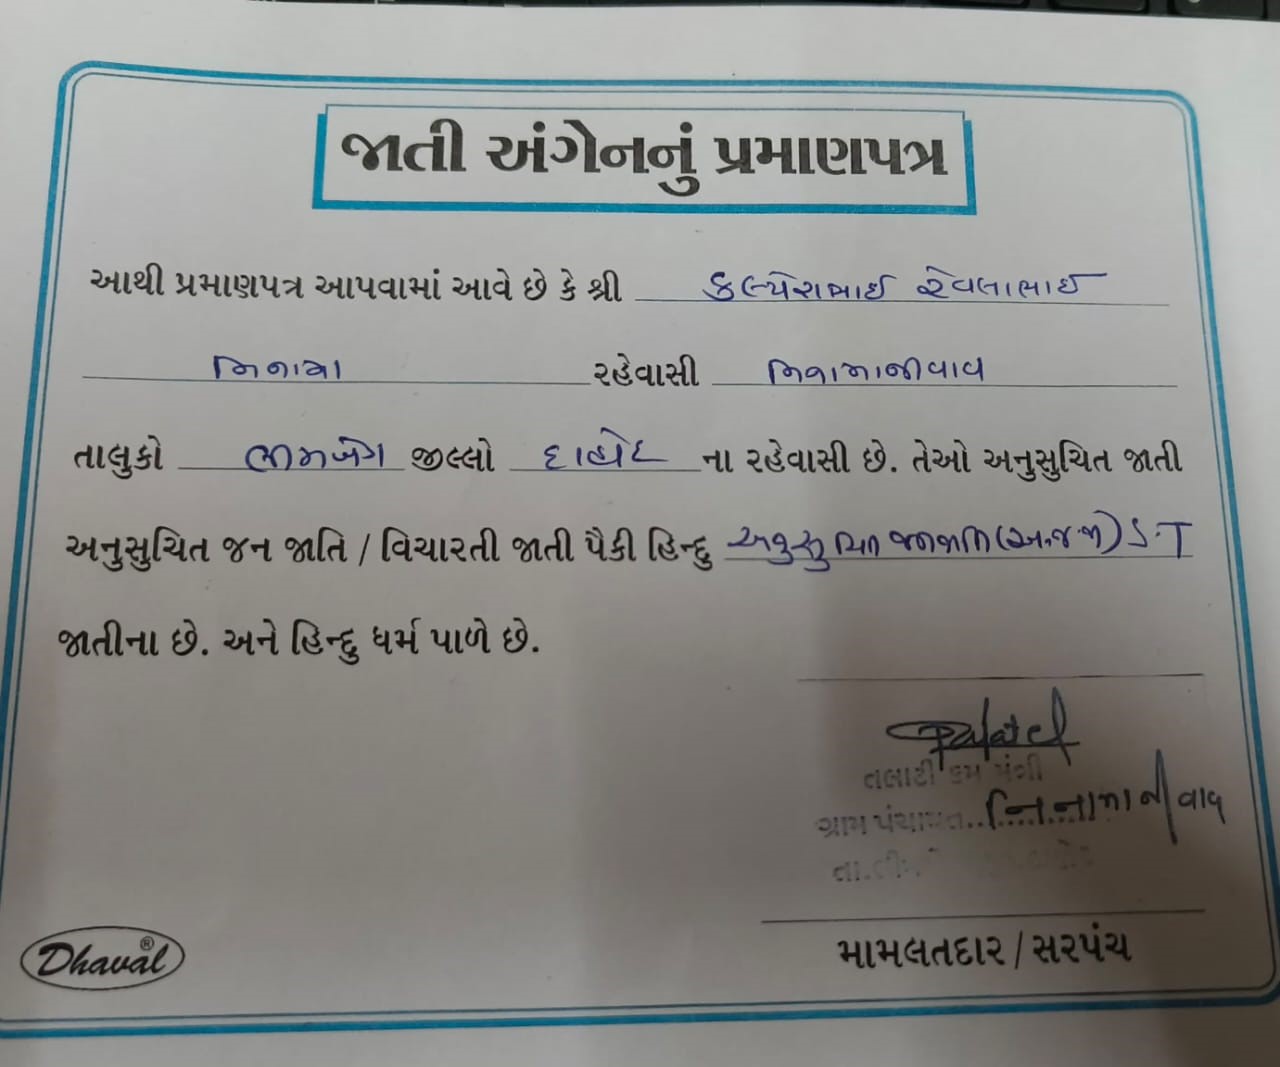 જાતી અંગેનનું પ્રમાણપત્ર
આથી પ્રમાણપત્ર આપવામાં આવે છે કે શ્રી કલ્પેશભાઈ રેવલાભાઈ
નિનામા રહેવાસી નિનામાનીવાવ
તાલુકો જીલ્લો દાહોદ ના રહેવાસી છે. તેઓ અનુસુચિત જાતી
અનુસુચિત જન જાતિ / વિચારતી જાતી પૈકી હિન્દુ અનુસુચિત જનજાતિ (અ.જ.જા) S.T
જાતીના છે. અને હિન્દુ ધર્મ પાળે છે.
તલાટી કમ મંત્રી
ગ્રામ પંચાયત..નિનામાનીવાવ
મામલતદાર / સરપંચ
Dhaval®